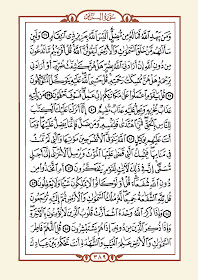 سورة الزمر
ومن يهد الله فما له من مضل أليس الله بعزيز ذى انتقام ولئن
سألتهم من خلق السموت والأرض ليقولن الله قل أفرءيتم ما تدعون
من دون الله إن أرادنى الله بضر هل هن كشفت ضره أو أرادنى
برحمة هل هن ممسكت رحمته قل حسبى الله عليه يتوكل
المتوكلون قل يقوم اعملوا على مكانتكم إنى عمل فسوف تعلمون من يأتيه
عذاب يخزيه ويحل عليه عذاب مقيم إنا أنزلنا عليك الكتب
للناس بالحق فمن اهتدى فلنفسه ومن ضل فإنما يضل عليها وما
أنت عليهم بوكيل الله يتوفى الأنفس حين موتها والتى لم تمت
فى منامها فيمسك التى قضى عليها الموت ويرسل الأخرى إلى أجل
مسمى إن فى ذلك لأيت لقوم يتفكرون أم اتخذوا من
دون الله شفعاء قل أولو كانوا لا يملكون شيئا ولا يعقلون
قل لله الشفعة جميعا له ملك السموت والأرض ثم إليه ترجعون
وإذا ذكر الله وحده اشمأزت قلوب الذين لا يؤمنون بالأخرة
وإذا ذكر الذين من دونه إذا هم يستبشرون قل اللهم فاطر
السموت والأرض علم الغيب والشهدة أنت تحكم بين عبادك
٣٨٩